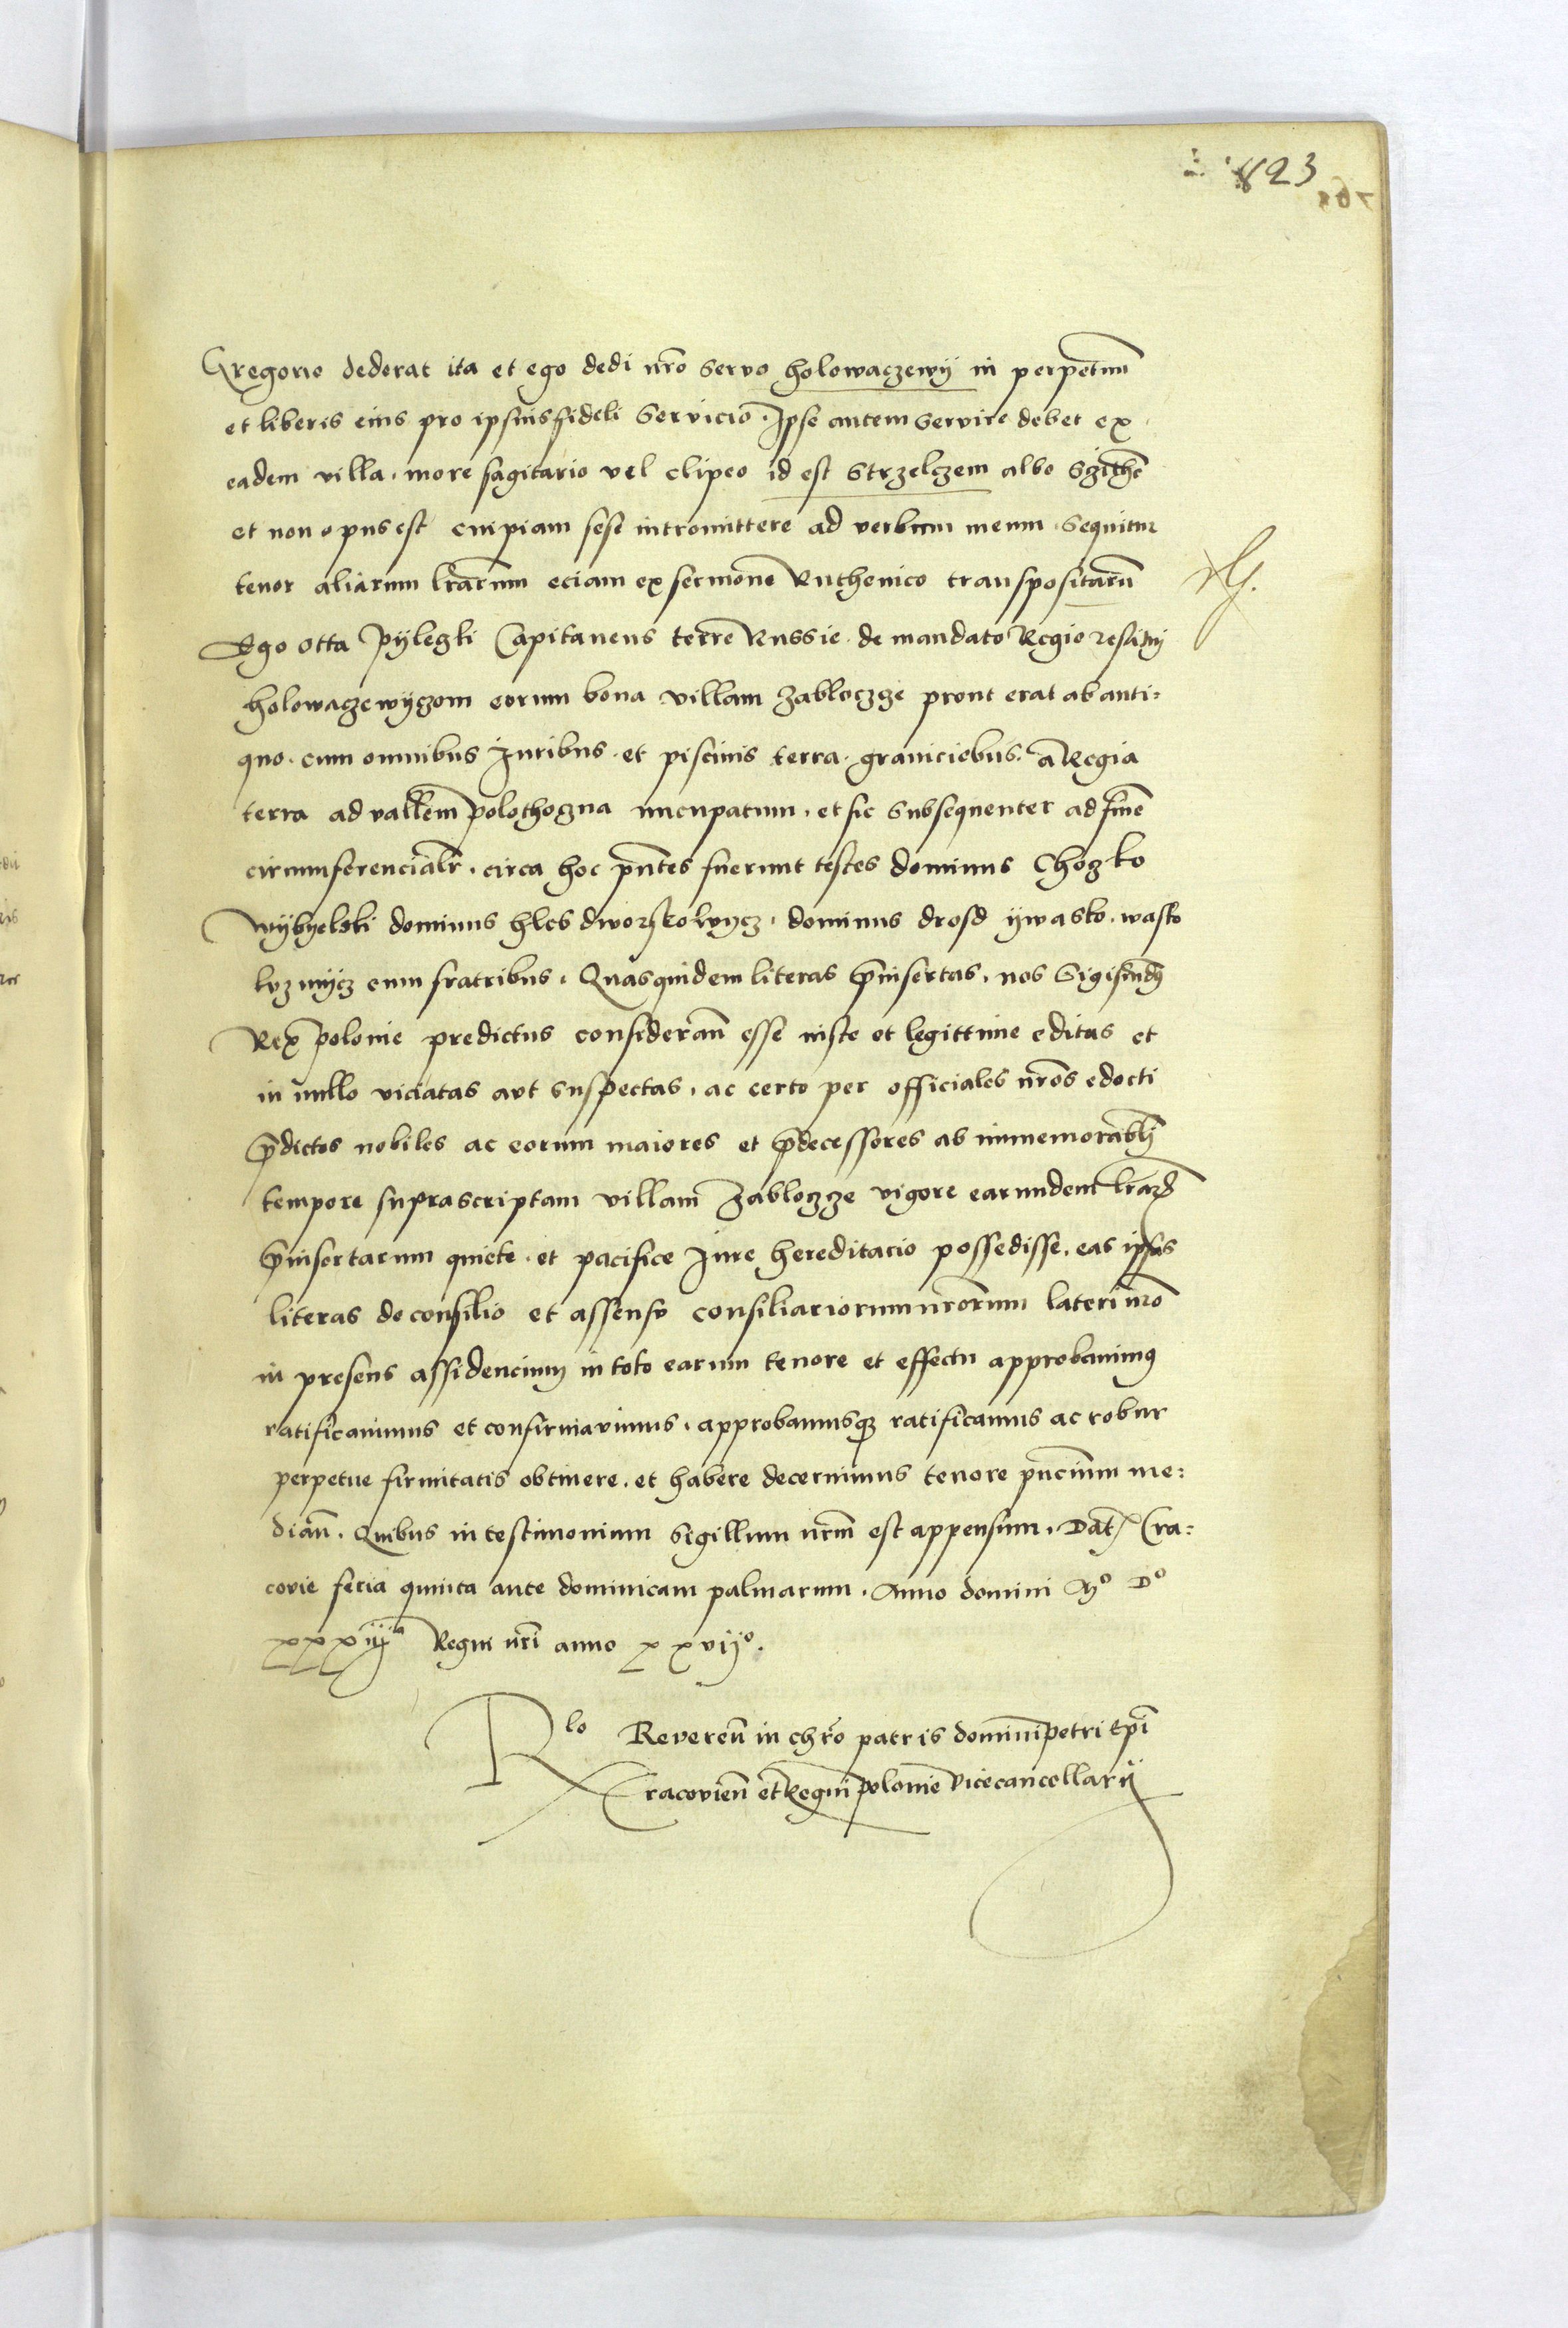 823
Gregorio dederat ita et ego dedi nro servo holowaczewy in perpetuum
et liberis eius pro ipsius fideli servicio. Ipse autem servire debet ex
eadem villa. more sagitario vel clipeo id est Strzelczem albo Sczithē
et non opus est cuipiam sese intromittere ad verbum meum. Sequitur
tenor aliarum lrarum eciam ex sermone Ruthenico transpositarū
Ego otta Pylegki Capitaneus terre Russie. de mandato Regio
holowaczewyczom eorum bona villam Zabloczge prout erat ab anti-
quo. cum omnibus Iuribus. et piscinis terra. graniciebus. a Regia
terra ad vallem polothogna nuncupatum. et sic subsequenter ad finē
circumferencialr. circa hoc pntes fuerunt testes dominus Chozko
wybyelski dominus hleb dworskowycz. dominus drosd ywasko. wasko
cum fratribus. Quasquidem literas pinsertas. nos
Rex polonie predictus consideran esse iuste et legittime editas et
in nullo viciatas aut suspectas. ac certo per officiales nros edocti
pdictos nobiles ac eorum maiores et pdecessores ab immemorabli
tempore suprascriptam villam Zabloczge vigore earundem lrarū
pinsertarum quiete. et pacifice Iure hereditario possedisse. eas ipsas
literas de consilio et assensu consiliariorum nrorum lateri nro
in presens assidencium in toto earum tenore et effectu approbavimus
ratificavimus et confirmavimus. approbamusque ratificamus ac robur
perpetue firmitatis obtinere. et habere decernimus tenore pncium me-
dian. Quibus in testimonium sigillum nrm est appensum. Dat Cra-
covie feria quinta ante dominicam palmarum. Anno domini Mo Do
xxxiiio Regni nri anno xxviio.
Rlo Reveren in chro patris domini petri Epi
Cracovien et Regni polonie Vicecancellarii